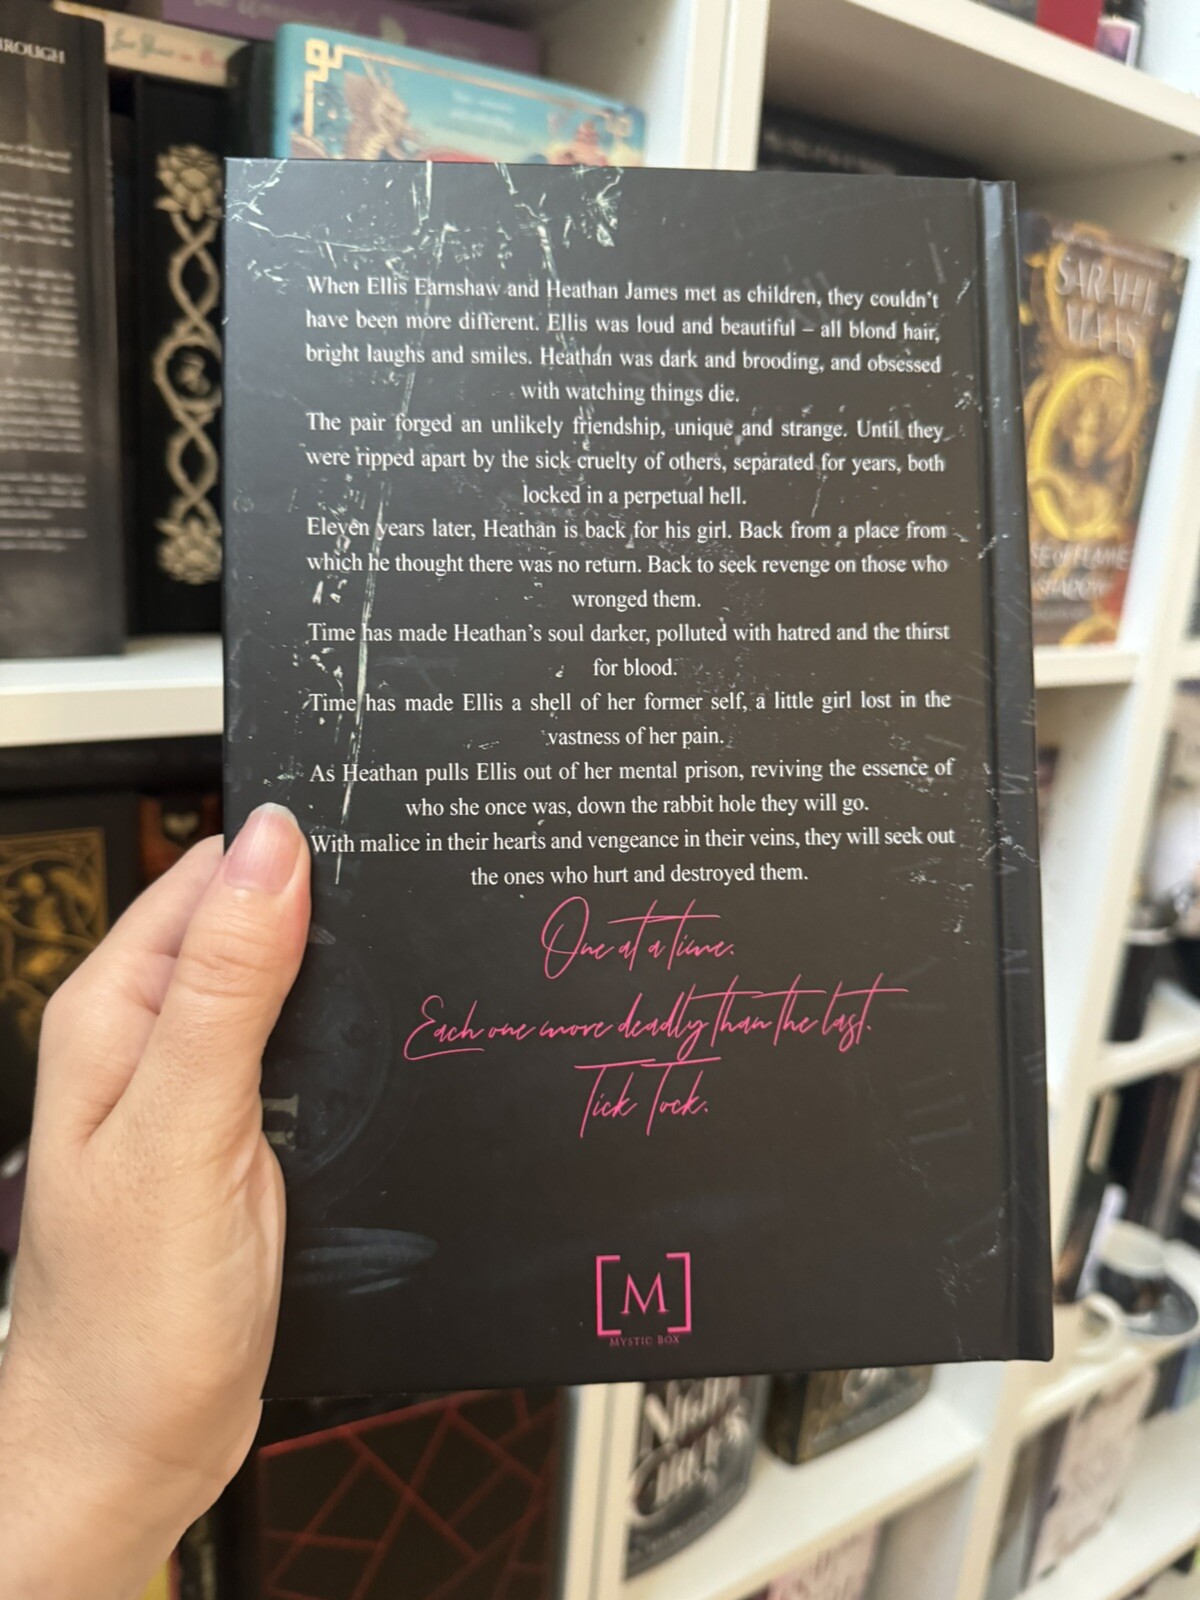 ROUGH
When Ellis Earnshaw and Heathan James met as children, they couldn't
have been more different. Ellis was loud and beautiful – all blond hair,
bright laughs and smiles. Heathan was dark and brooding, and obsessed
with watching things die.
The pair forged an unlikely friendship, unique and strange. Until they
were ripped apart by the sick cruelty of others, separated for years, both
locked in a perpetual hell.
Eleven years later, Heathan is back for his girl. Back from a place from
which he thought there was no return. Back to seek revenge on those who
wronged them.
Time has made Heathan's soul darker, polluted with hatred and the thirst
for blood.
Time has made Ellis a shell of her former self, a little girl lost in the
vastness of her pain.
As Heathan pulls Ellis out of her mental prison, reviving the essence of
who she once was, down the rabbit hole they will go.
With malice in their hearts and vengeance in their veins, they will seek out
the ones who hurt and destroyed them.
One at a time.
Each one more deadly than the last.
Tick Tock.
[M]
MYSTIC BOX
SARAH J.
MAAS
SE OF FLAME
SHADOW